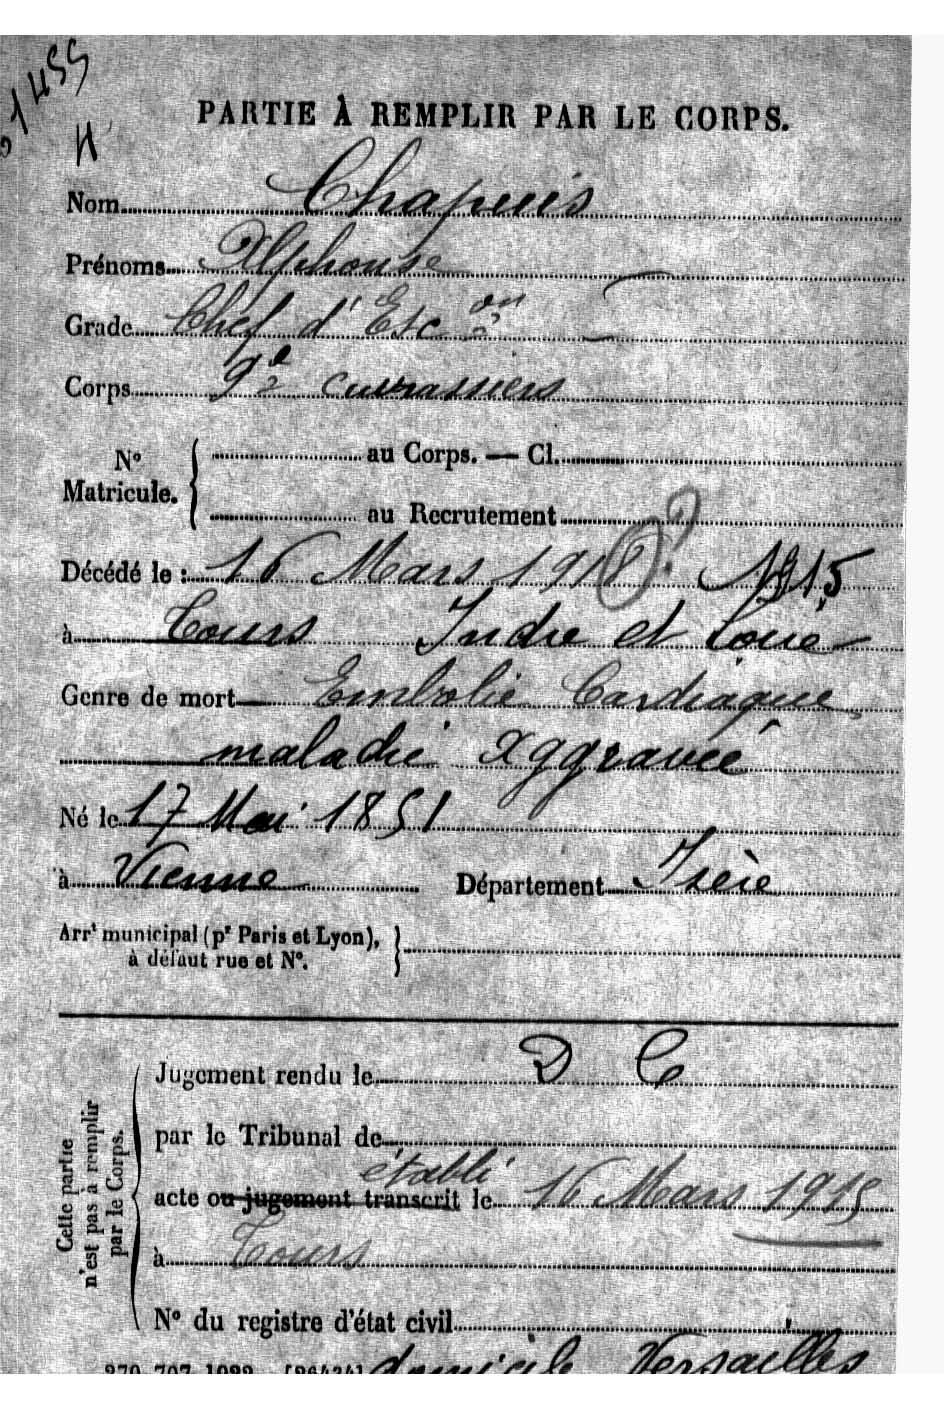 1455
H
PARTIE À REMPLIR PAR LE CORPS.
Nom Chapuis
Prénoms Alphonse
Grade Chef d'Esc on
Corps 9e cuirassiers
No Matricule. { au Corps. — Cl.
au Recrutement
Décédé le : 16 Mars 1918 ? 1915
à Tours Indre et Loire
Genre de mort Embolie Cardiaque
maladie aggravée
Né le 17 Mai 1851
à Vienne Département Isère
Arrt municipal (pr Paris et Lyon), à défaut rue et No. }
Cette partie n'est pas à remplir par le Corps.
Jugement rendu le D C
par le Tribunal de
établi
acte ou jugement transcrit le 16 Mars 1915
à Tours
No du registre d'état civil
270-707-1922. [26434] domicile Versailles